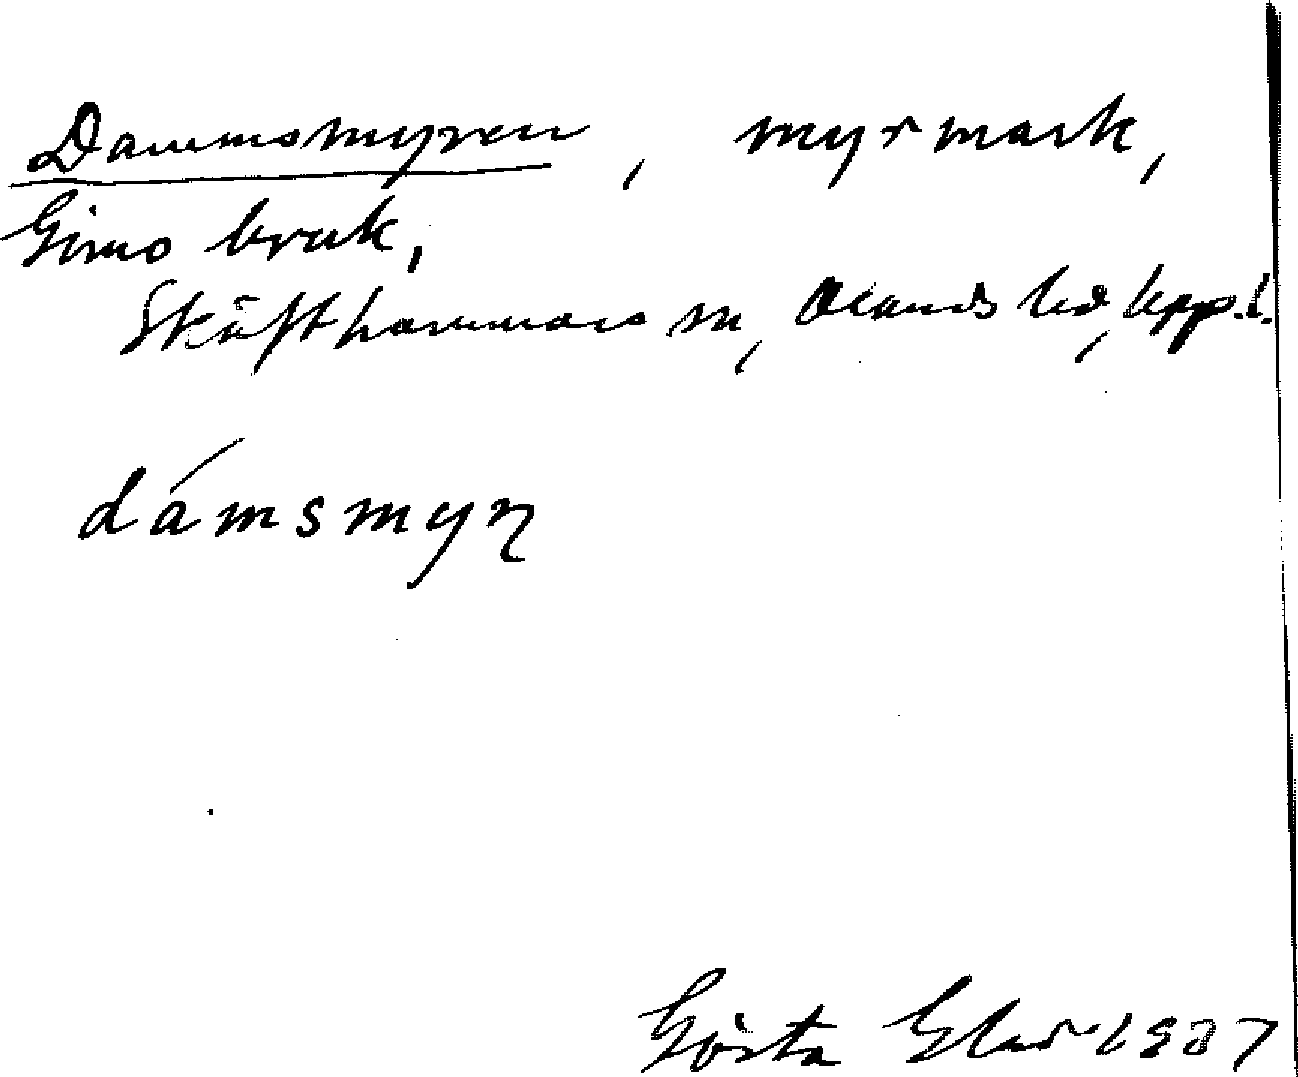 Dammsmyren, myrmark,
Gimo bruk,
Skäfthammars sn, Olands hd, Uppl.
dámsmyɿ
Gösta 1937